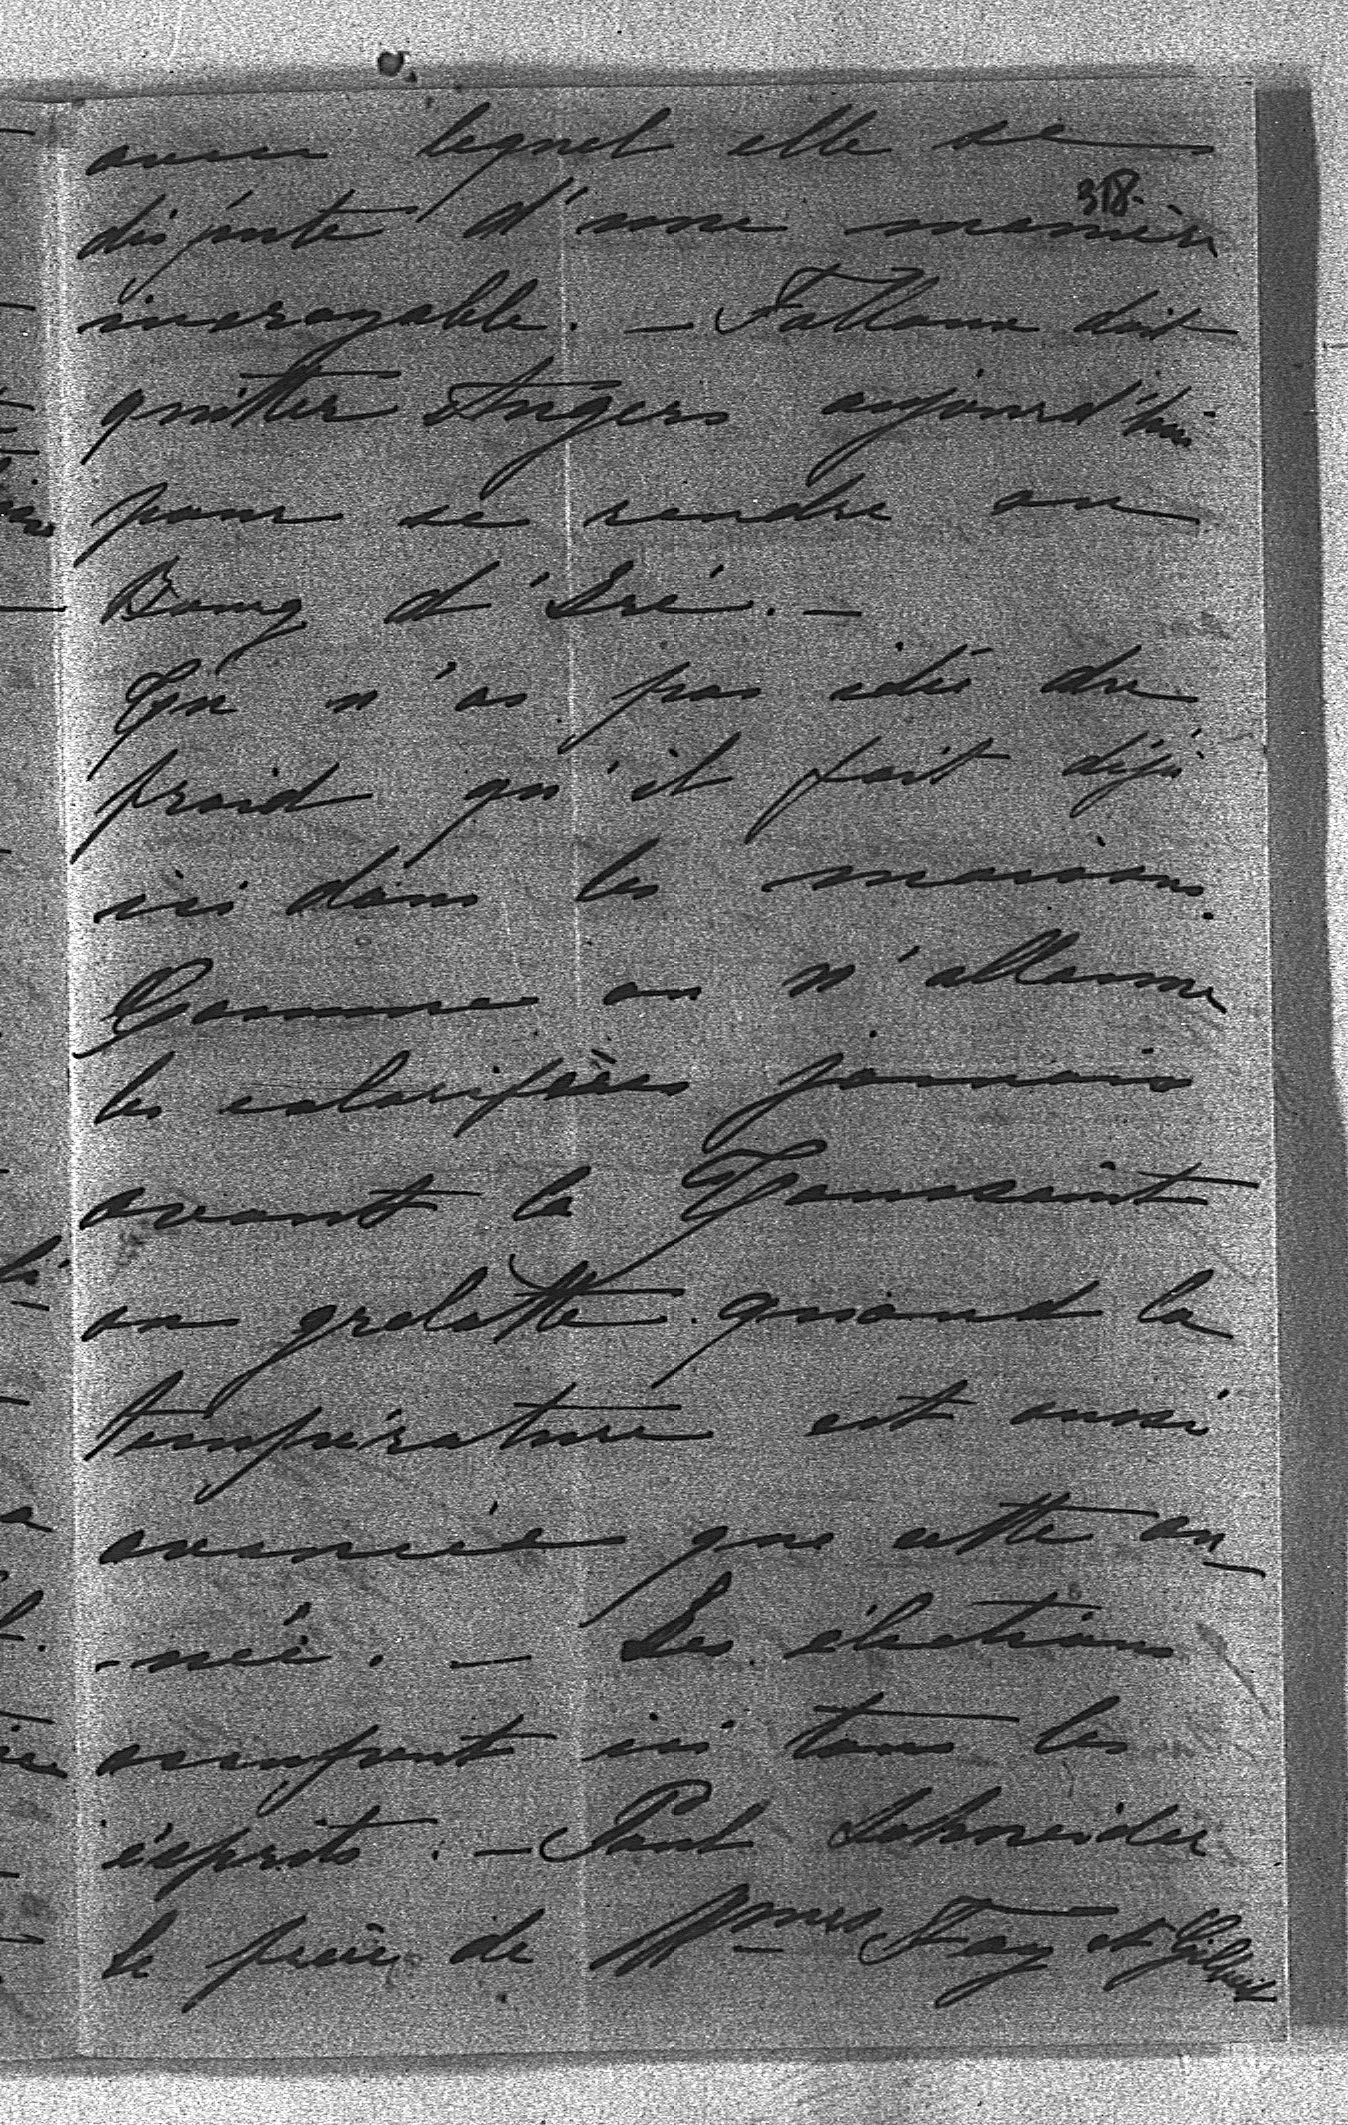 avec lequel elle se
318.
dispute d'une manière
incroyable. — Falloux doit
quitter Angers aujourd'hui
pour se rendre au
Bourg d'Iré. —
Tu n'as pas idée du
froid qu'il fait déjà
ici dans les maisons.
Comme on n'allume
les calorifères jamais
avant la Toussaint
on grelotte quand la
température est aussi
avancée que cette an
-née. — Les élections
occupent ici tous les
esprits. — Paul Schneider
le frère de Mmes Fay et Gilbert